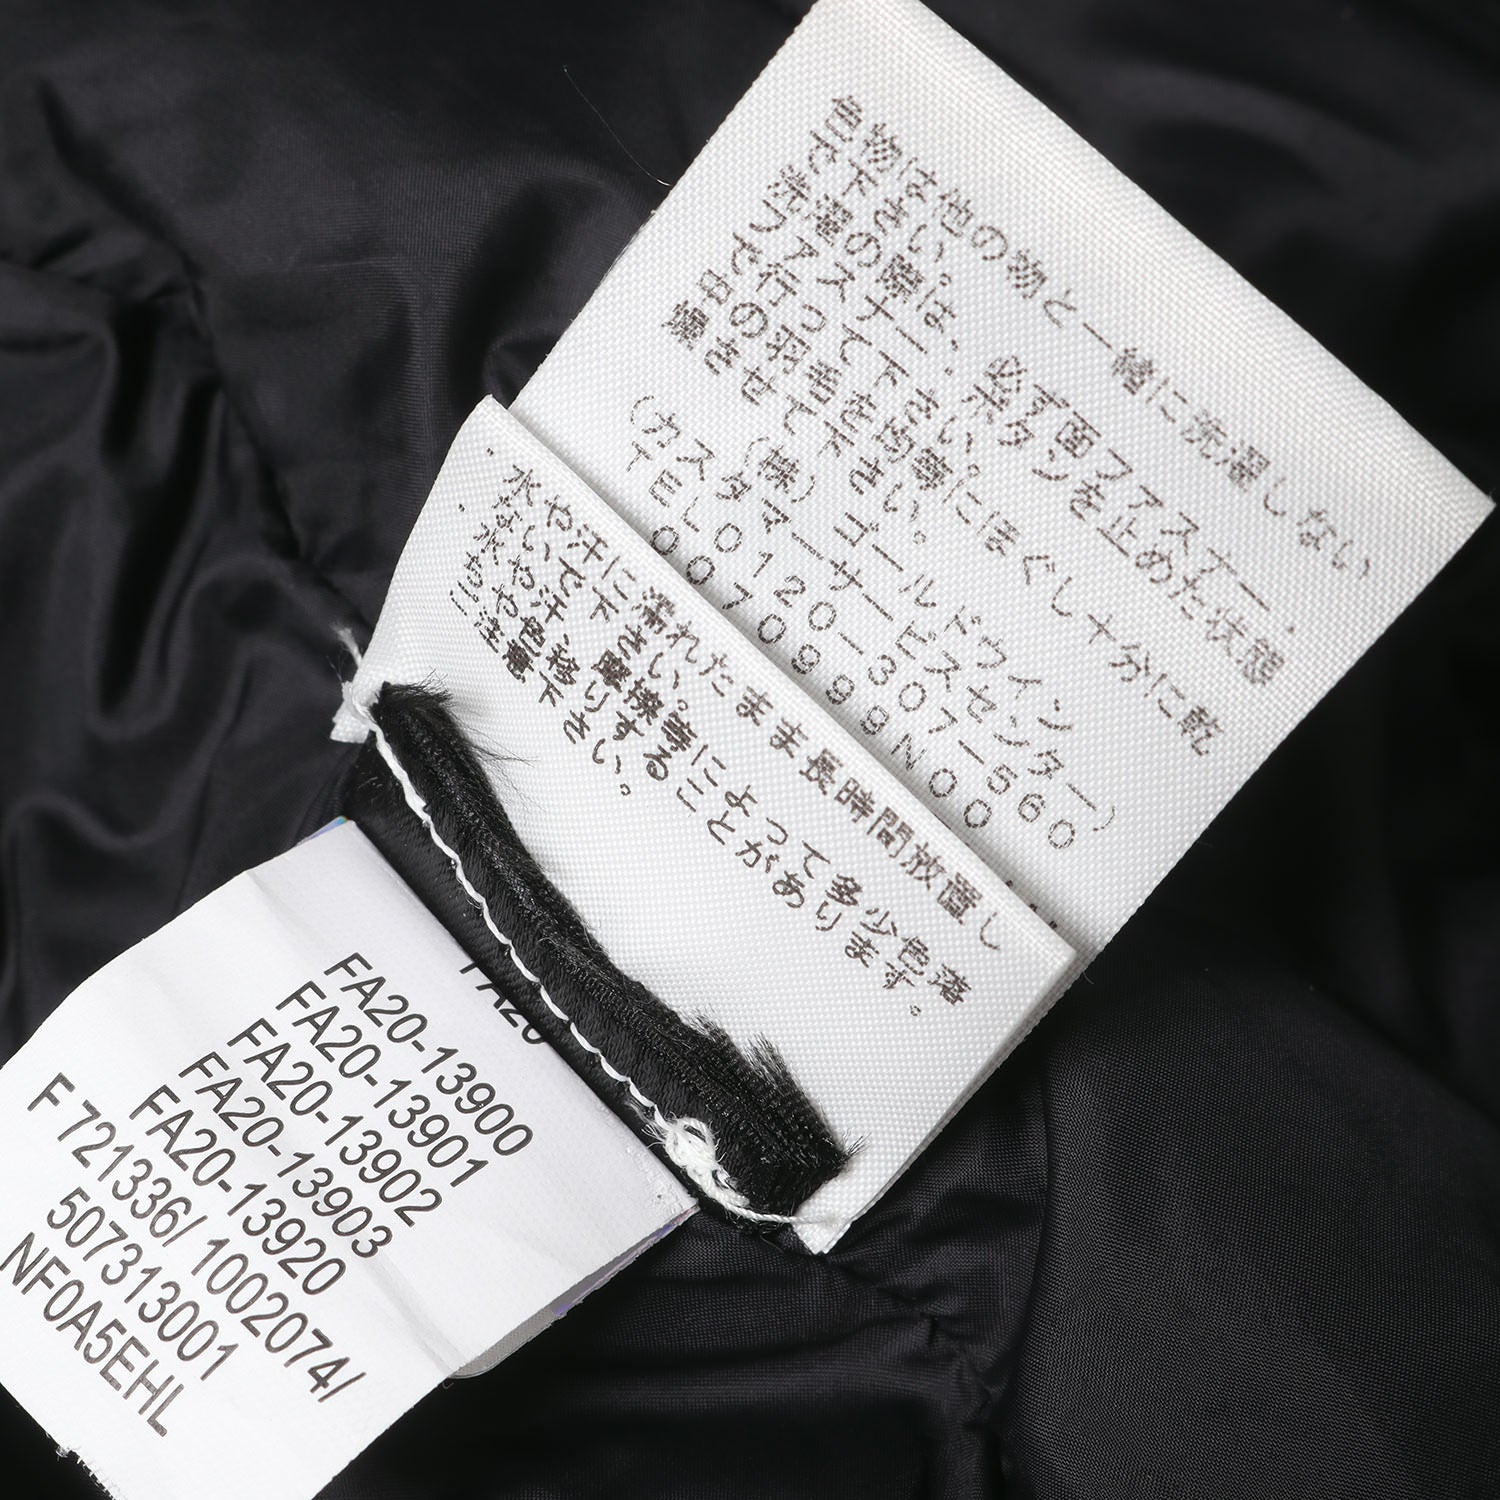 色物は他の物と一緒に洗濯しない
で下さい。
洗濯の際は、必ず面ファスナー、
ファスナー、ボタンを止めた状態
で行って下さい。
中の羽毛を均等にほぐし十分に乾
燥させて下さい。
(株)ゴールドウイン
(カスタマーサービスセンター)
TEL0120-307-560
0070999N00
・水や汗に濡れたまま長時間放置し
ないで下さい。
・水や汗、摩擦等によって多少色落
色移りすることがあります。
ご注意下さい。
FA20
FA20-13900
FA20-13901
FA20-13902
FA20-13903
FA20-13920
F 721336/ 1002074/
507313001
NF0A5EHL